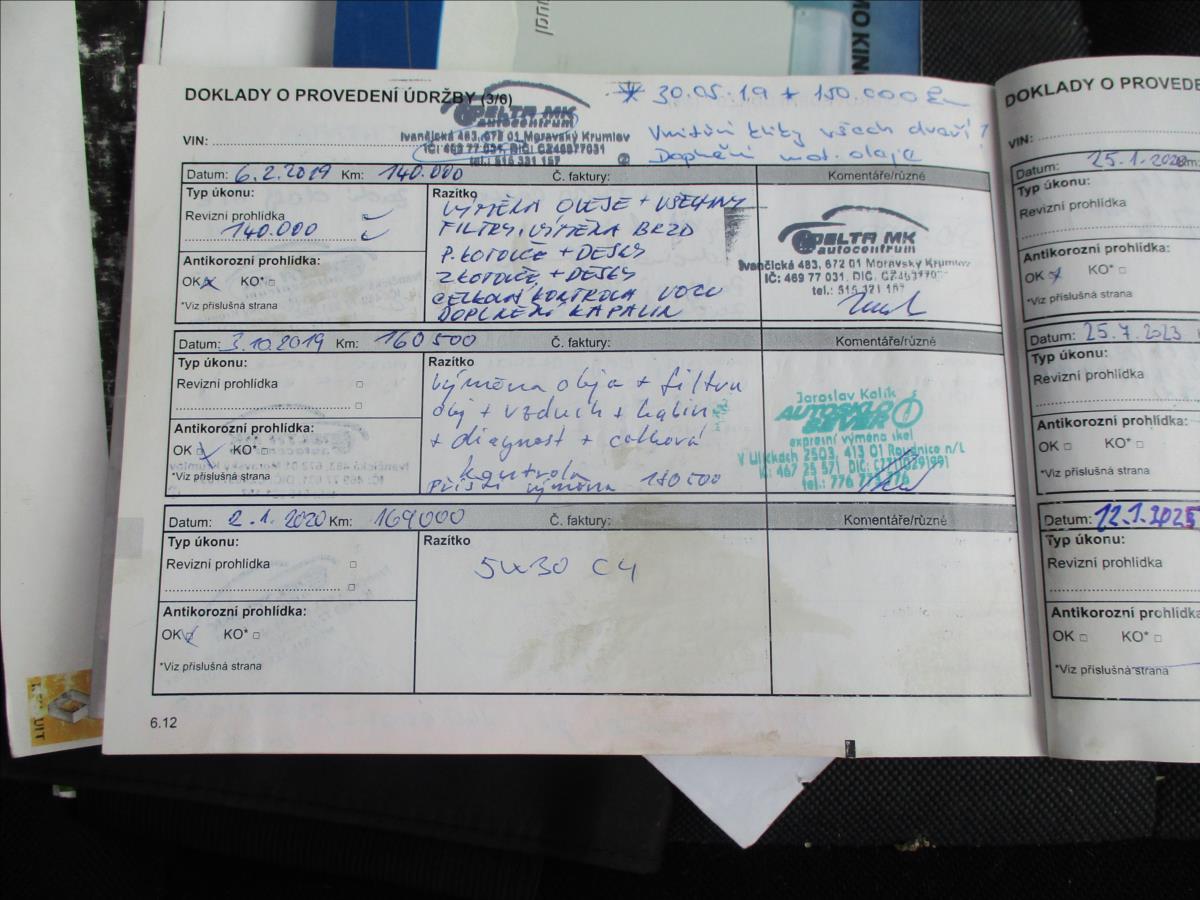 DOKLADY O PROVEDENÍ ÚDRŽBY (3/6)
DELTA MK
autocentrum
Ivančická 483, 672 01 Moravský Krumlov
IČ: 469 77 031, DIČ: CZ46977031
tel.: 515 321 157
VIN:
* 30.05.19 * 150.000 km
Vnitřní kliky všech dveří!
Doplnění mot. oleje
Datum: 6.2.2019 Km: 140.000 Č. faktury: Komentáře/různé
Typ úkonu:
Revizní prohlídka
140.000
Antikorozní prohlídka:
OK KO*
*Viz příslušná strana
Razítko
VÝMĚNA OLEJE + VŠECHNY
FILTRY, VÝMĚNA BRZD
P. KOTOUČE + DESKY
Z KOTOUČE + DESKY
CELKOVÁ KONTROLA VOZU
DOPLNĚNÍ KAPALIN
DELTA MK
autocentrum
Ivančická 483, 672 01 Moravský Krumlov
IČ: 469 77 031, DIČ.
tel.:
Datum: 3.10.2019 Km: 160500 Č. faktury: Komentáře/různé
Typ úkonu:
Revizní prohlídka
Antikorozní prohlídka:
OK KO*
*Viz příslušná strana
Razítko
výměna oleje + filtru
olej + vzduch + kabin
+ diagnost + celková
kontrola
Příští výměna 180500
Jaroslav Kalík
AUTOSKLO
BEVER
expresní výměna skel
V Uličkách 2503, 413 01 Roudnice n/L
tel.: 776
Datum: 2.1.2020 Km: 164000 Č. faktury: Komentáře/různé
Typ úkonu:
Revizní prohlídka
Antikorozní prohlídka:
OK KO*
*Viz příslušná strana
Razítko
5W30 C4
6.12
DOKLADY O PROVEDE
VIN:
Datum: 25.1.
Typ úkonu:
Revizní prohlídka
Antikorozní prohlídka:
OK KO*
*Viz příslušná strana
Datum: 25.7.2023
Typ úkonu:
Revizní prohlídka
Antikorozní prohlídka:
OK KO*
*Viz příslušná strana
Datum: 12.1.2025
Typ úkonu:
Revizní prohlídka
Antikorozní prohlídka:
OK KO*
*Viz příslušná strana